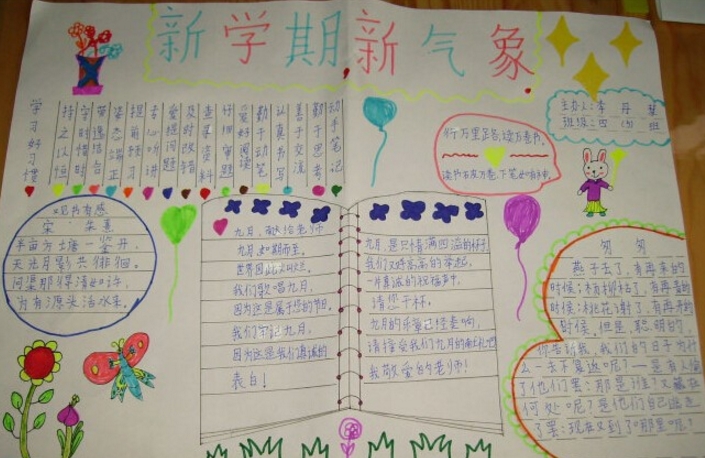 新学期新气象
主办人:李丹
班级:四(4)班
学习好习惯
持之以恒
守时惜时
姿态端正
提前预习
专心听讲
爱提问题
及时改错
查查资料
仔细审题
爱好阅读
勤于动笔
认真书写
善于交流
勤于思考
动手笔记
行万里路,读万卷书。
读书破万卷,下笔如有神。
观书有感
宋:朱熹
半亩方塘一鉴开,
天光云影共徘徊。
问渠那得清如许,
为有源头活水来。
九月,献给老师
九月,如期而至。
世界因此
我们歌唱九月,
因为这是属于您的节日。
我们牢记九月,
因为这是我们真诚的
表白!
九月,是只情满四溢的杯子,
我们又好高高的举起,
一片真诚的祝福声中,
请您干杯。
九月的乐章已经奏响,
请接受我们九月的献礼吧
我敬爱的老师!
匆匆
燕子去了,有再来的
时候;杨柳枯了,有再青的
时候;桃花谢了,有再开的
时候。但是,聪明的,
你告诉我,我们的日子为什
么一去不复返呢?——是有人偷
了他们罢:那是谁?又藏在
何处呢?是他们自己逃走
了罢:现在又到了哪里呢?